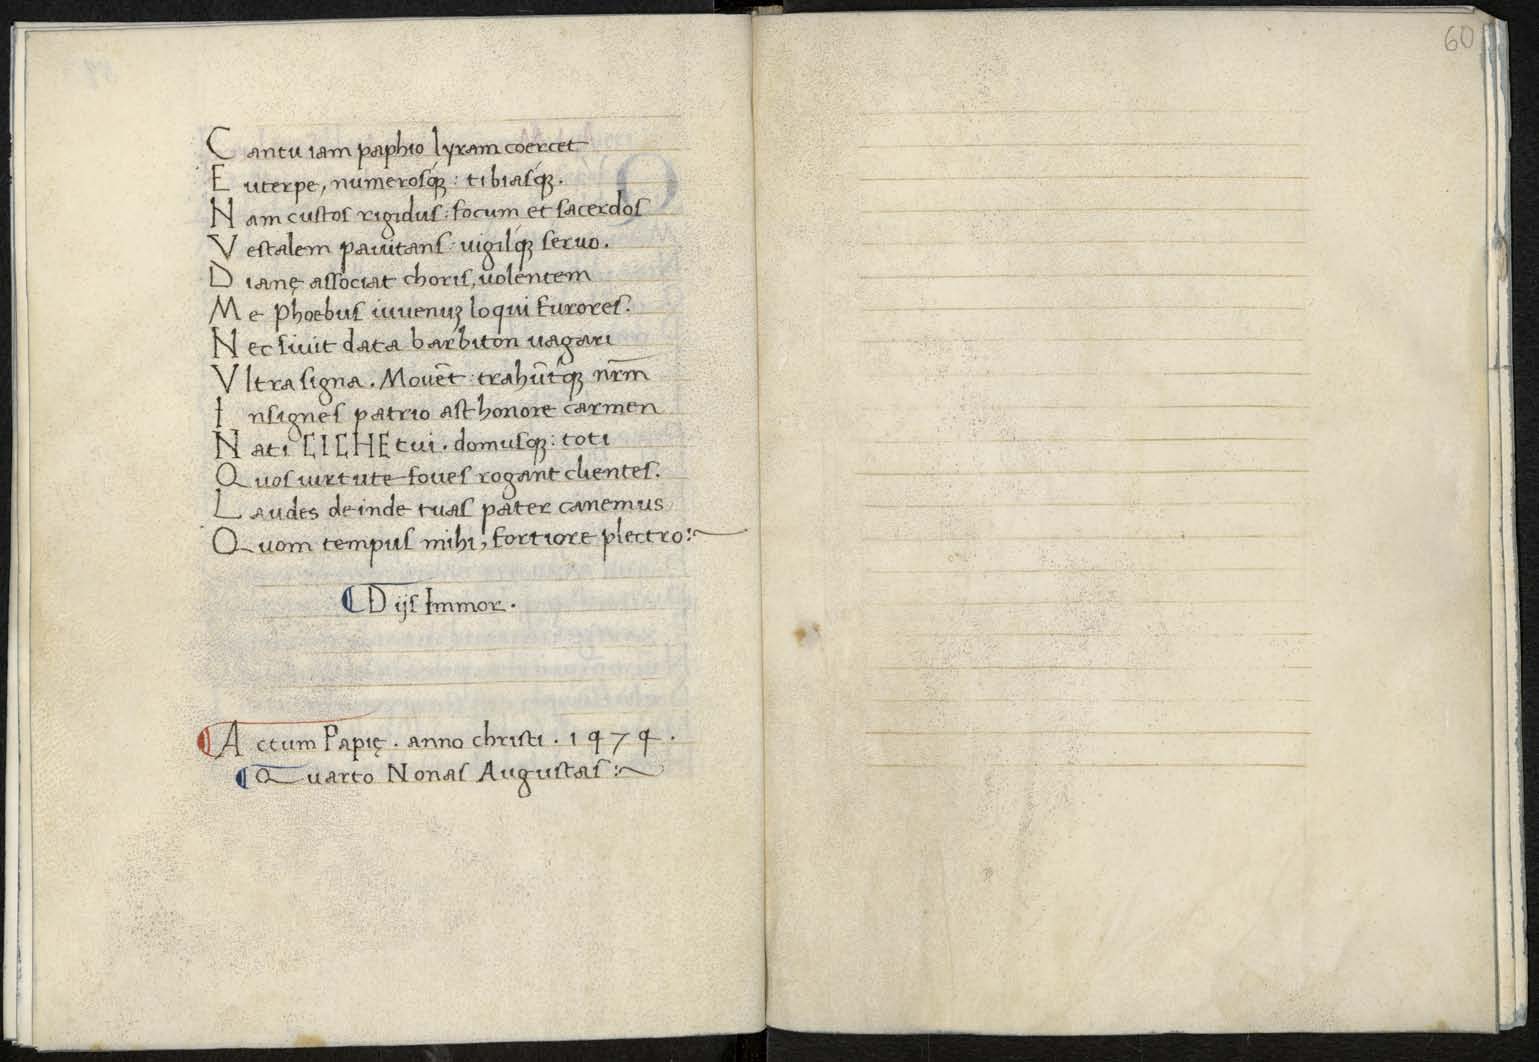 60
Cantu iam paphio lyram coercet
Euterpe, numerosq́ꝫ: tibiasq́ꝫ.
Nam custos rigidus: focum et sacerdos
Vestalem pauitans: uigilq́ꝫ seruo.
Dianę associat choris, uolentem
Me Phoebus iuuenuꝫ loqui furores.
Nec siuit data barbiton uagari
Vltra signa. Mouēt: trahūtq́ꝫ nr̄m
Insignes patrio ast honore carmen
Nati CICHE tui. domusqꝫ: toti
Quos uirtute foues rogant clientes.
Laudes deinde tuas pater canemus
Quom tempus mihi, fortiore plectro:~
Dijs Immor.
Actum Papię. anno christi. 1474.
Quarto Nonas Augustas:~